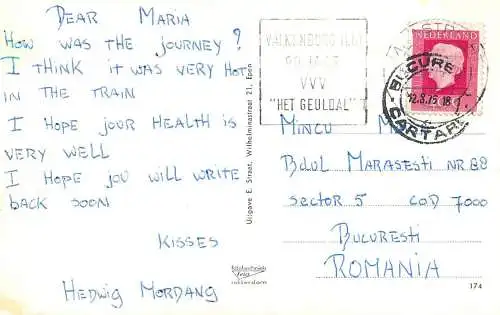 DEAR MARIA
HOW WAS THE JOURNEY?
I THINK IT WAS VERY HOT
IN THE TRAIN
I HOPE JOUR HEALTH IS
VERY WELL
I HOPE JOU WILL WRITE
BACK SOON
KISSES
HEDWIG MORDANG
Uitgave E. Straat, Wilhelminastraat 21, Epen
rotterdam
VALKENBURG
VVV
"HET GEULDAL"
NEDERLAND
CARTARE
MINCU
Bdul MARASESTI NR 88
SECTOR 5 COD 7000
BUCURESTI
ROMANIA
174